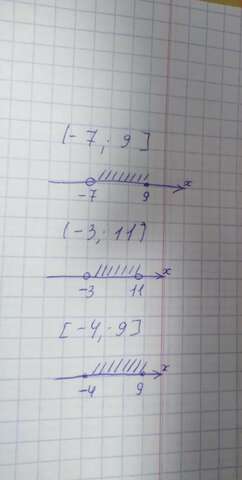 (-7; 9]
x
-7 9
(-3; 11)
x
-3 11
[-4; 9]
x
-4 9